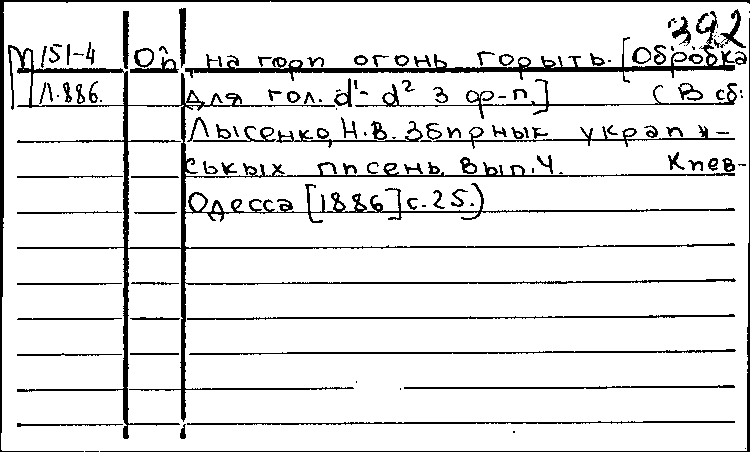 392
М 151-4 Ой, на гори огонь горыть. [Обробка
Л.886. для гол. d¹- d² з ф-п.] (В сб:
Лысенко, Н.В. Збирнык украпн-
ськых писень. Вып.4. Киев-
Одесса [1886] с.25.)